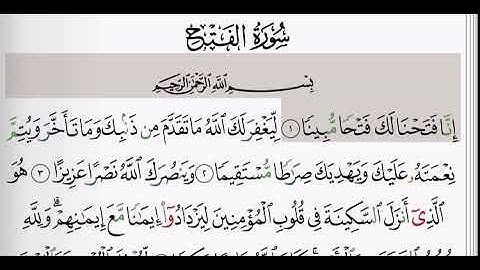 سُورَةُ الفَتۡحِ
بِسۡمِ ٱللَّهِ ٱلرَّحۡمَٰنِ ٱلرَّحِيمِ
إِنَّا فَتَحۡنَا لَكَ فَتۡحٗا مُّبِينٗا ١ لِّيَغۡفِرَ لَكَ ٱللَّهُ مَا تَقَدَّمَ مِن ذَنۢبِكَ وَمَا تَأَخَّرَ وَيُتِمَّ
نِعۡمَتَهُۥ عَلَيۡكَ وَيَهۡدِيَكَ صِرَٰطٗا مُّسۡتَقِيمٗا ٢ وَيَنصُرَكَ ٱللَّهُ نَصۡرًا عَزِيزًا ٣ هُوَ
ٱلَّذِيٓ أَنزَلَ ٱلسَّكِينَةَ فِي قُلُوبِ ٱلۡمُؤۡمِنِينَ لِيَزۡدَادُوٓاْ إِيمَٰنٗا مَّعَ إِيمَٰنِهِمۡۗ وَلِلَّهِ